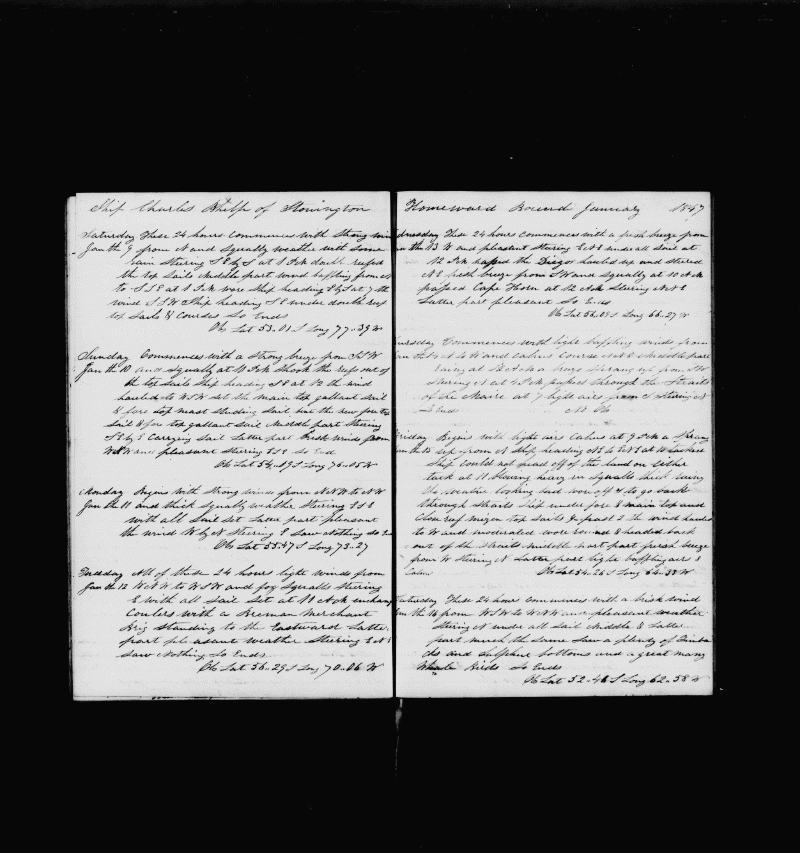 Ship Charles Phelp of Stonington
Saturday These 24 hours Commences with Strong win
Jan the 9 from N and Squally weather with Some
rain Stering S E by S at 1 P M doubl reefed
the top Sails Middle part wind baffling from
to S S E at 1 P M wore Ship heading at 7 the
wind S S W Ship heading S E under doubl reef
top Sails & Courses So Ends
Ob Lat 53.01 S Long 77-39 W
Sunday Commences with a Strong breeze from S S W
Jan the 10 and Squally at 11 P M Shook the reefs out of
the top Sails Ship heading S E at 12 the wind
hauled to W S W Set the main top gallant Sail
& fore top mast Studing Sail bent the new fore top
Sail & fore top gallant Sail Middle part Stering
S E by S Carrying Sail Latter part fresh winds from
and pleasant Stering S S E So End
Ob Lat 54-19 S Long 76-05 W
Monday Begins with Strong winds from N N W to N W
Jan the 11 and thick Squally weather Stering S S E
with all Sail Set Latter part pleasant
the wind W by N Stering E Saw Nothing So End
Ob Lat 55-47 S Long 73-27
Tuesday All of these 24 hours light winds from
Jan the 12 W N W to W S W and fog Squalls Stering
E with all Sail Set at 11 A M exchang
Coulers with a Breman Merchant
Brig Standing to the Eastward Latter
part pleasant weather Steering E N E
Saw Nothing So Ends
Ob Lat 56-29 S Long 70-06 W
Homeward Bound January 1847
dnesday These 24 hours Commences with a fresh breeze from
an the 13 W and pleasant Stering E N E under all Sail at
12 P M passed the Diego hauled up and stered
N E fresh breeze from S W and Squally at 10 A M
passed Cape Horn at 12 A M Stering N N E
Latter part pleasant So Ends
Ob Lat 56.01 S Long 66-27 W
ursday Commences with light baffling winds from
an the 14 N to W and Calms Course N N E Middle part
raing at 12 A M a breze Sprang up from S W
Stering N at 4 P M passed through the Straits
of the Maire at 7 light aires from S Stering N
So Ends No Ob
riday Begins with light airs Calms at 9 P M a Sprang
an the 15 up from N Ship heading
Ship Could not head off of the land on Either
tack at 11 Blowing heavy in Squalls thick
the weather looking bad wore off & to go back
through Straits Ship under fore & main top and
Clous reef mizen top Sails & past 2 the wind hauled
to W and moderated wore round & headed back
out of the Straits middle part fresh breeze
from W Stering N Latter part light baffling airs &
Calms Ob Lat 54-26 S Long 64-38 W
aturday These 24 hours Commences with a brisk wind
an the 16 from W S W to W N W and pleasant weather
Stering N under all Sail Middle & Latter
part much the Same Saw a plenty of finba
cks and Sulpher bottoms and a great many
Whale Birds So Ends
Ob Lat 52-46 S Long 62-58 W